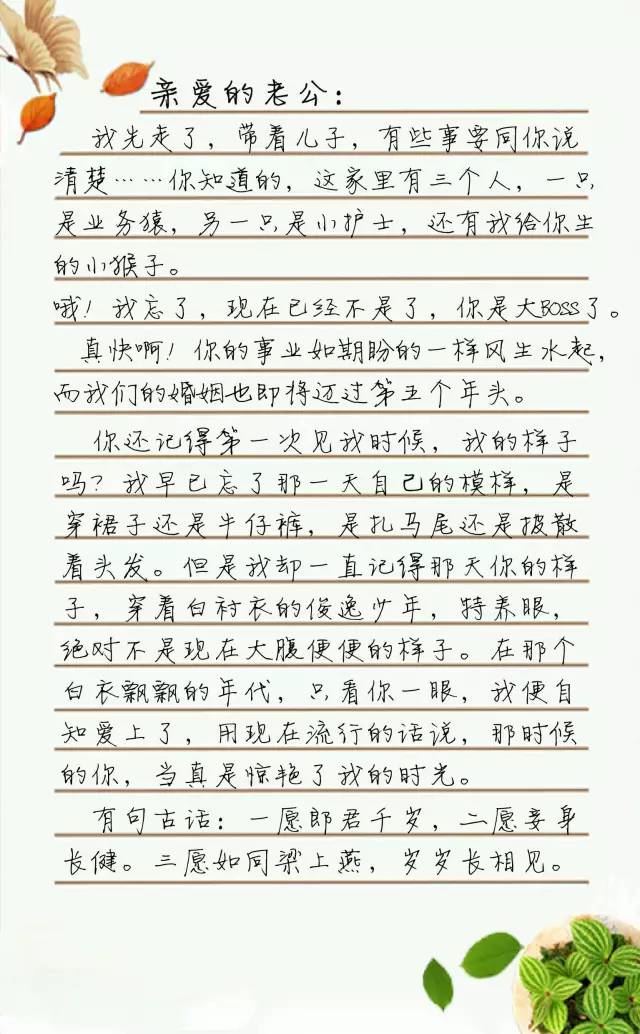 亲爱的老公：
我先走了，带着儿子，有些事要同你说
清楚……你知道的，这家里有三个人，一只
是业务猿，另一只是小护士，还有我给你生
的小猴子。
哦！我忘了，现在已经不是了，你是大BOSS了。
真快啊！你的事业如期盼的一样风生水起，
而我们的婚姻也即将迈过第五个年头。
你还记得第一次见我时候，我的样子
吗？我早已忘了那一天自己的模样，是
穿裙子还是牛仔裤，是扎马尾还是披散
着头发。但是我却一直记得那天你的样
子，穿着白衬衣的俊逸少年，特养眼，
绝对不是现在大腹便便的样子。在那个
白衣飘飘的年代，只看你一眼，我便自
知爱上了，用现在流行的话说，那时候
的你，当真是惊艳了我的时光。
有句古话：一愿郎君千岁，二愿妾身
长健。三愿如同梁上燕，岁岁长相见。